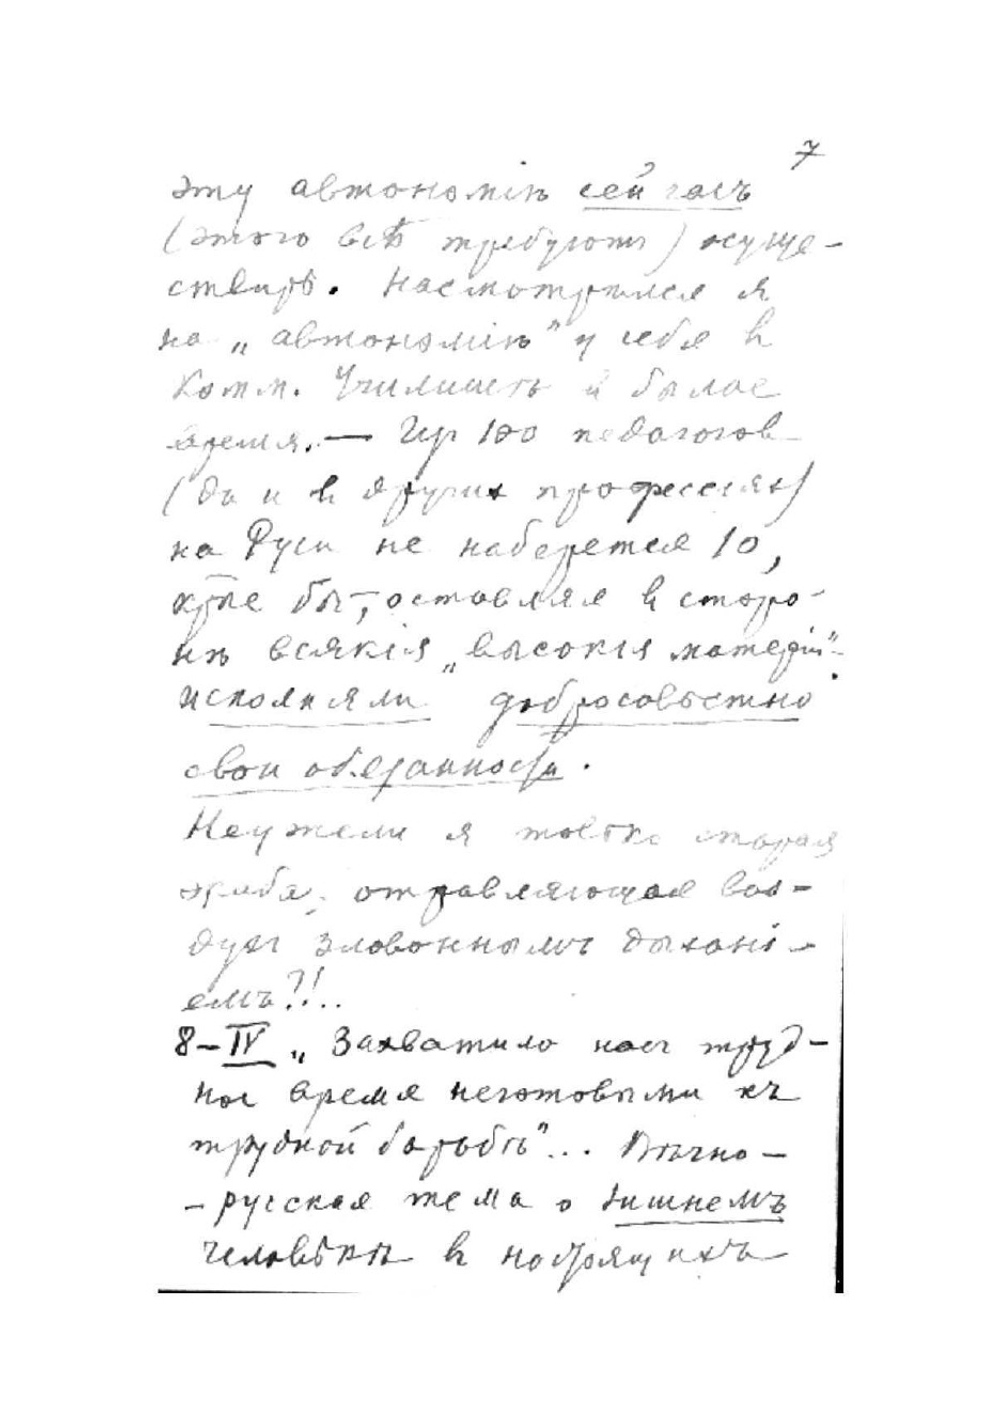 7
эту автономiю сейчасъ
(этого всѣ требуютъ) осуще-
ствить. Насмотрѣлся я
на „автономiю" у себя в
Комм. Училищѣ в былое
время. — Из 100 педагогов
(да и в других профессiях)
на Руси не наберется 10,
кто бы, оставляя в сторо-
нѣ всякiя „высокiя матерiи"
исполняли добросовѣстно
свои обязанности.
Неужели я только старая
отравляющая воз-
дух зловоннымъ дыханi-
емъ?!..
8-IV „Захватило насъ труд-
ное время неготовыми къ
трудной борьбѣ"... Вѣчно-
-русская тема о лишнемъ
человѣкѣ в настоящихъ